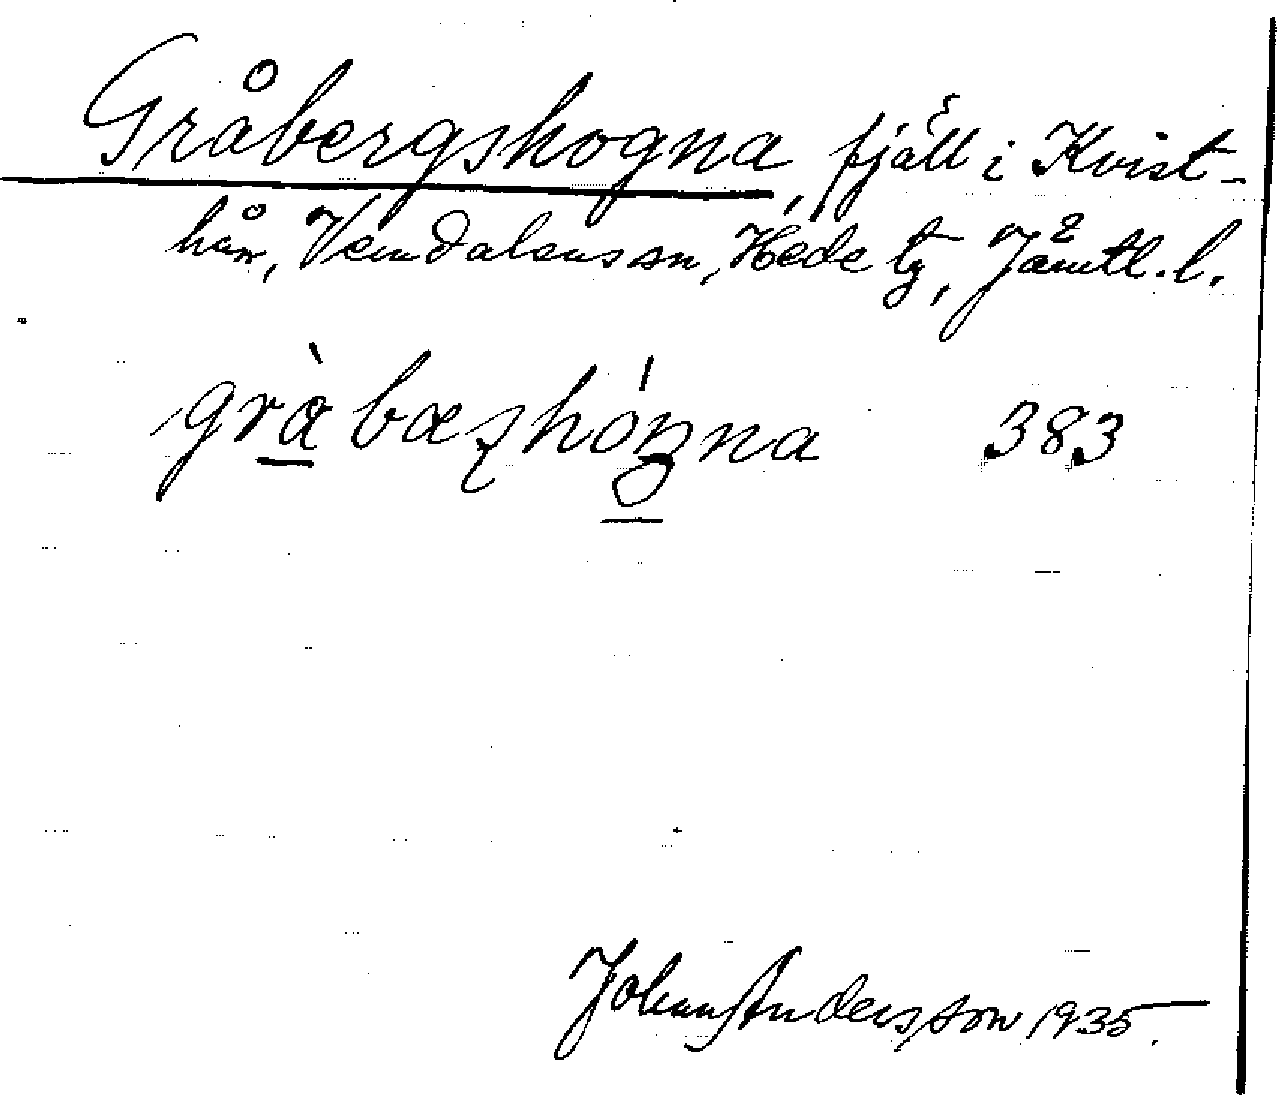 Gråbergshogna, fjäll i Kvist-
hån, Vemdalens sn, Hede tg, Jämtl. l.
383
Johan Andersson 1935.